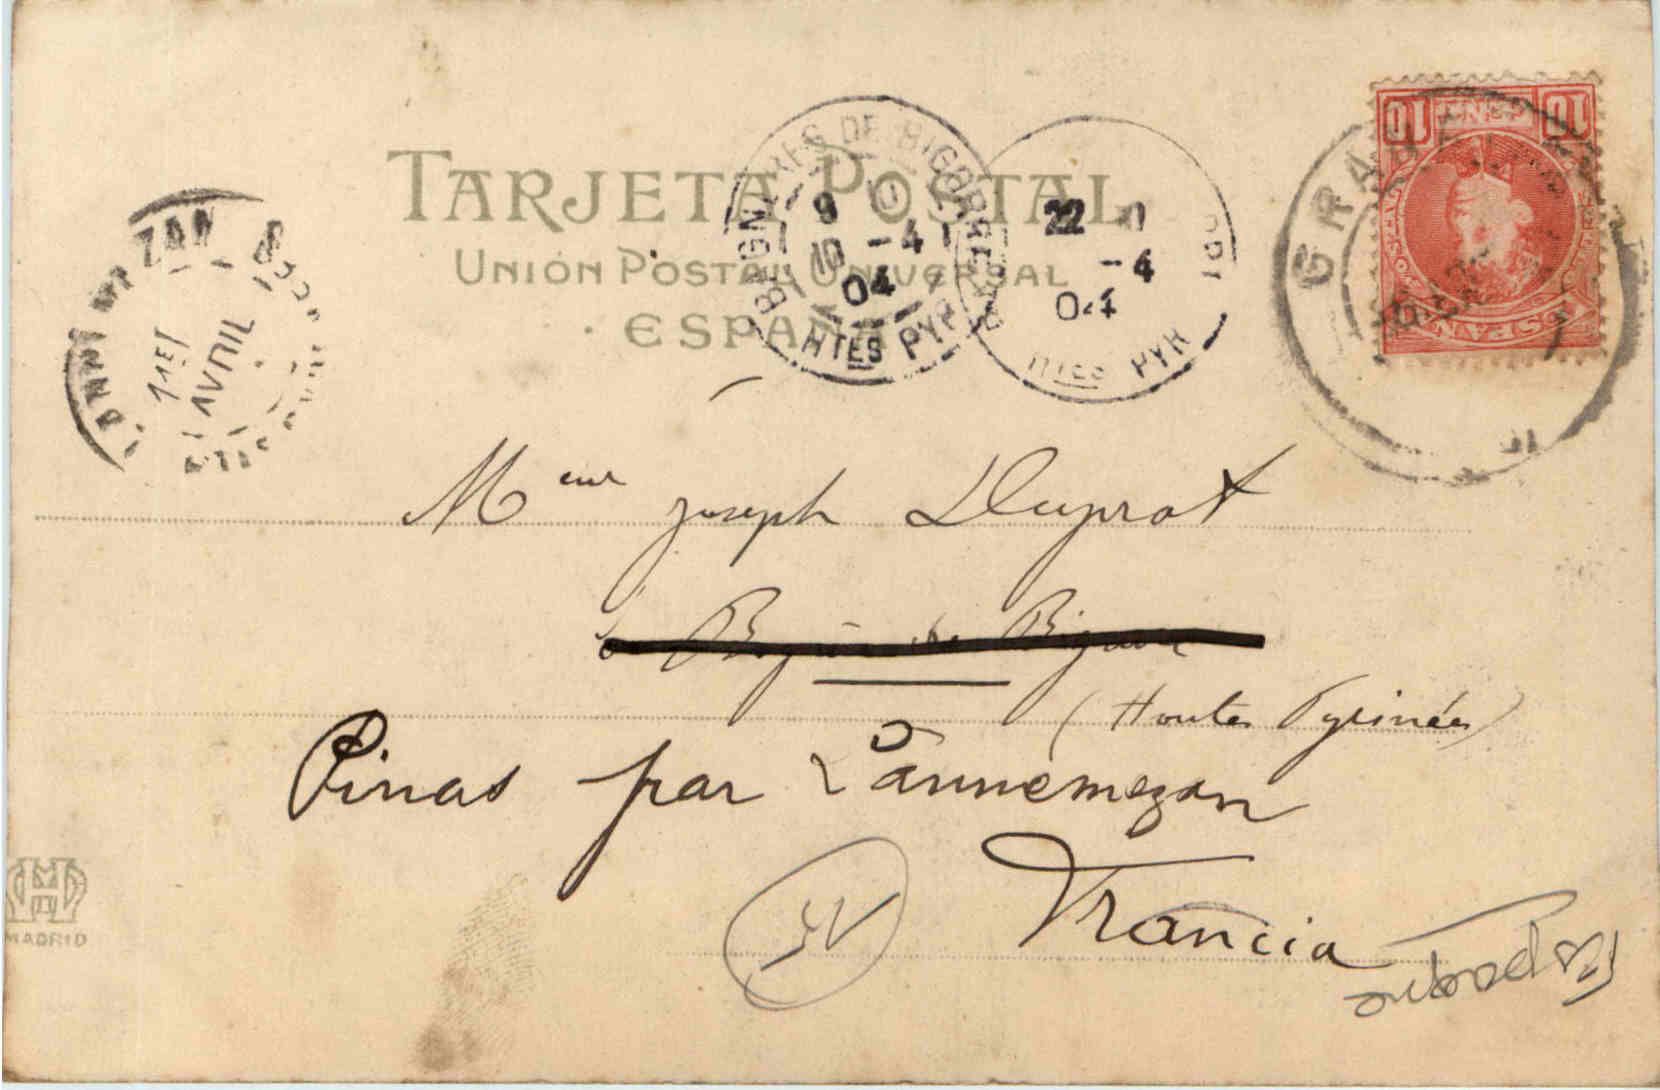 TARJETA POSTAL
UNIÓN POSTAL UNIVERSAL
· ESPAÑA ·
BAGNÈRES DE BIGORRE
9
10 -4
04
HTES PYR
22
-4
04
HTES PYR
1ER
AVRIL
10 CENT 10
ESPAÑA
GRA
Meur Joseph Duprat
à Bagnères de Bigorre
(Hautes Pyrinées)
Pinas par Lannemezan
Francia
MADRID